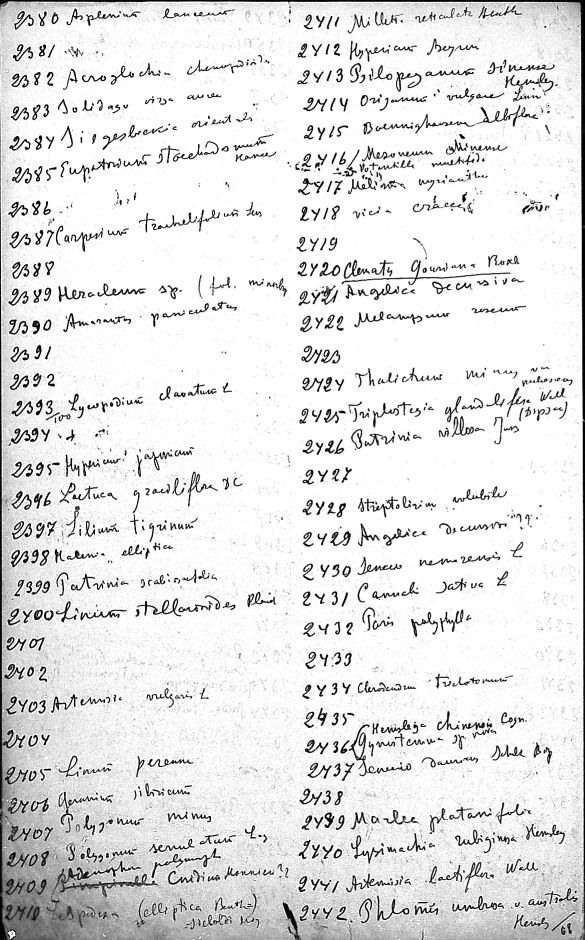 2380 Asplenium lanceum
2381
2382 Acroglochin chenopodioides
2383 Solidago virga aurea
2384 Siegesbeckia orientalis
2385 Eupatorium stoechadosmum
Hance
2386
2387 Carpesium trachelifolium Less
2388
2389 Heracleum sp. (fol. minoribus
2390 Amarantus paniculatus
2391
2392
2393 Lycopodium clavatum L
2394
2395 Hypericum japonicum
2396 Lactuca graciliflora DC
2397 Lilium tigrinum
2398 Halenia elliptica
2399 Patrinia scabiosaefolia
2400 Linum stelleroides Planch
2401
2402
2403 Artemisia vulgaris L
2404
2405 Linum perenne
2406 Geranium sibiricum
2407 Polygonum minus
2408 Polygonum serrulatum Lag
Adenophora polymorpha
2409 Cnidium Monnieri ??
2410 Lespedeza (elliptica Benth=)
Sieboldi Miq
2411 Milletia reticulata Benth
2412 Hypericum
2413 Psilopeganum sinense
Hemsley
2414 Origanum vulgare Linn
2415 Boenninghausenia albiflora
2416 Mezoneurum sinense
Potentilla multifida
2417
2418 vicia cracca
2419
2420 Clematis Gouriana Roxb
2421 Angelica decursiva
2422 Melampyrum roseum
2423
2424 Thalictrum minus var
2425 Triplostegia glandulifera Wall
(Dipsac)
2426 Patrinia villosa Juss
2427
2428 Streptolirion volubile
2429 Angelica decursiva
2430 Senecio nemorensis L
2431 Cannabis sativa L
2432 Paris polyphylla
2433
2434 Clerodendron trichotomum
2435
Hemsleya chinensis Cogn.
2436 Gynostemma sp. nova
2437 Senecio dauricus Schultz Bip
2438
2439 Marlea platanifolia
2440 Lysimachia rubiginosa Hemsley
2441 Artemisia lactiflora Wall
2442 Phlomis umbrosa v. australis
Hemsl
68